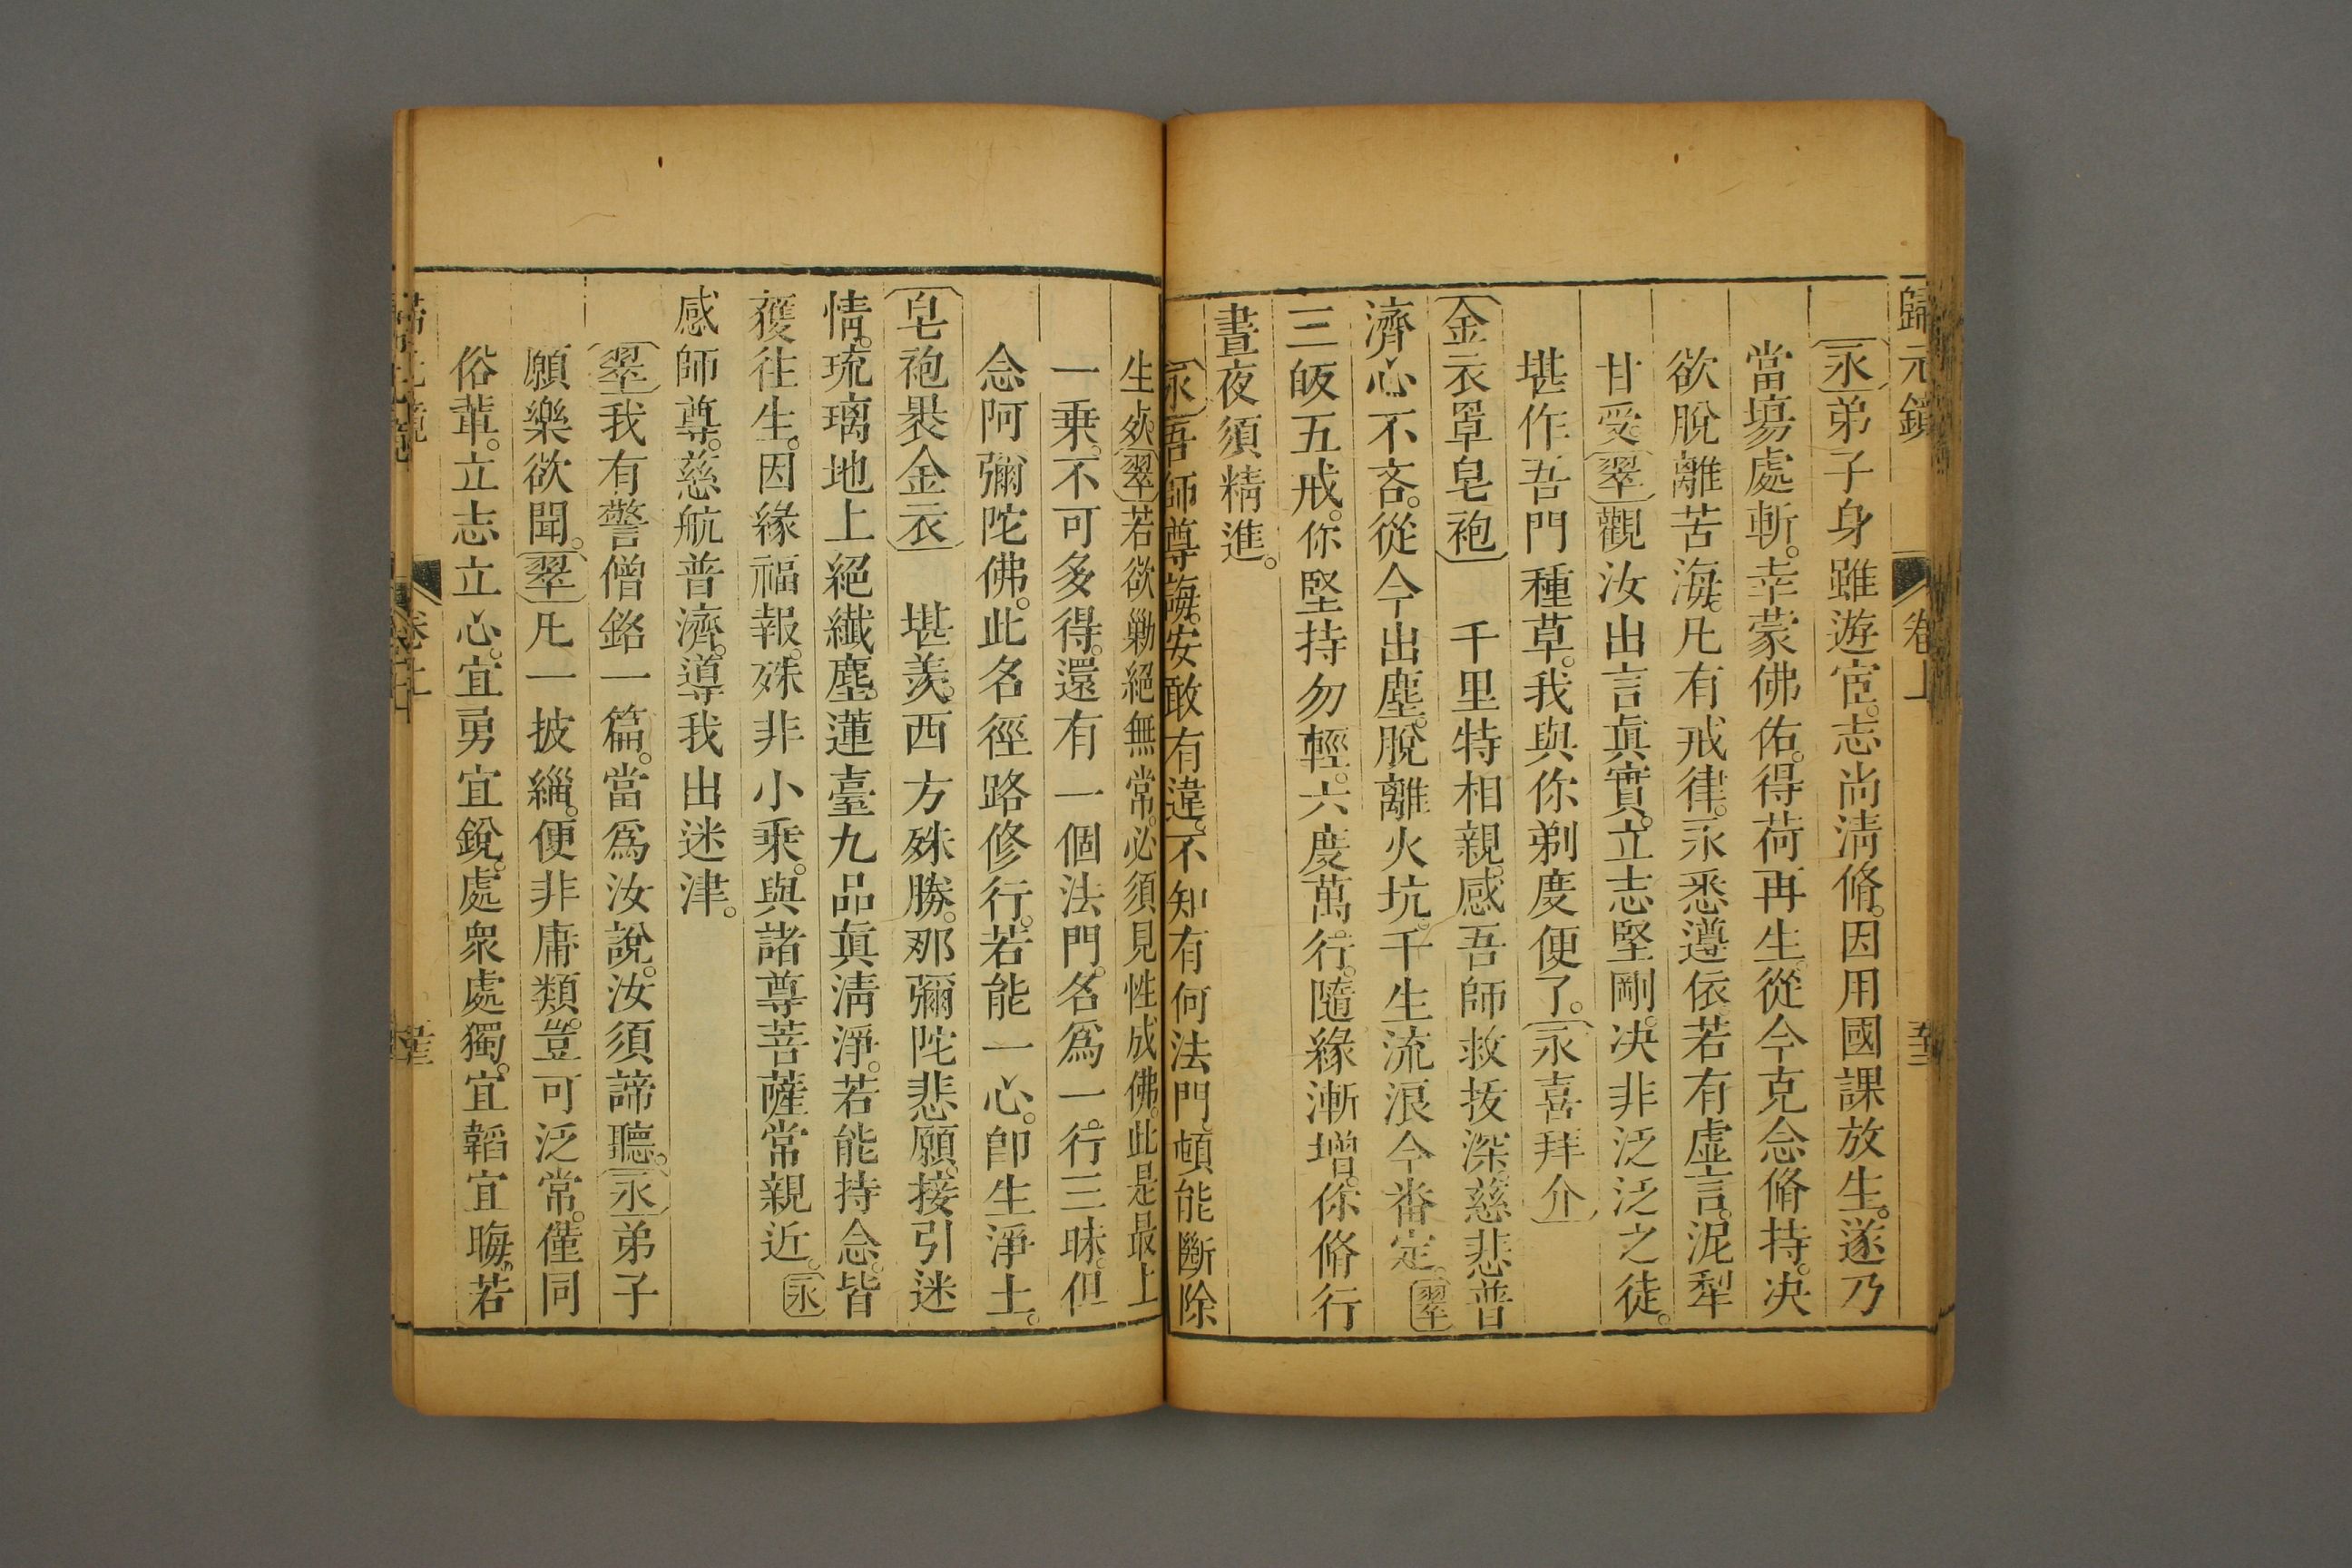 歸元鏡　卷上
〔永〕弟子身雖遊宦。志尚清脩。因用國課放生。遂乃
當塲處斬。幸蒙佛佑。得荷再生。從今克念脩持。决
欲脫離苦海。凡有戒律。永悉遵依。若有虛言。泥犁
甘受。〔翠〕觀汝出言眞實。立志堅剛。决非泛泛之徒。
堪作吾門種草。我與你剃度便了。〔永喜拜介〕
〔金衣罩皂袍〕千里特相親。感吾師救拔深。慈悲普
濟心不吝。從今出塵。脫離火坑。千生流浪今番定。〔翠〕
三皈五戒。你堅持勿輕。六度萬行。隨緣漸增。你脩行
晝夜須精進。
〔永〕吾師尊誨。安敢有違。不知有何法門。頓能斷除
生死。〔翠〕若欲勦絕無常。必須見性成佛。此是最上
一乗。不可多得。還有一個法門。名爲一行三昧。但
念阿彌陀佛。此名徑路修行。若能一心。卽生淨土。
〔皂袍裂金衣〕堪羨。西方殊勝。那彌陀悲願。接引迷
情。琉璃地上絕纖塵。蓮臺九品眞淸淨。若能持念。皆
獲往生。因緣福報。殊非小乗。與諸尊菩薩常親近。〔永〕
感師尊。慈航普濟。導我出迷津。
〔翠〕我有警僧銘一篇。當爲汝說。汝須諦聽。〔永〕弟子
願樂欲聞。〔翠〕凡一披緇。便非庸類。豈可泛常。僅同
俗輩。立志立心。宜勇宜銳。處衆處獨。宜韜宜晦。若
卷上